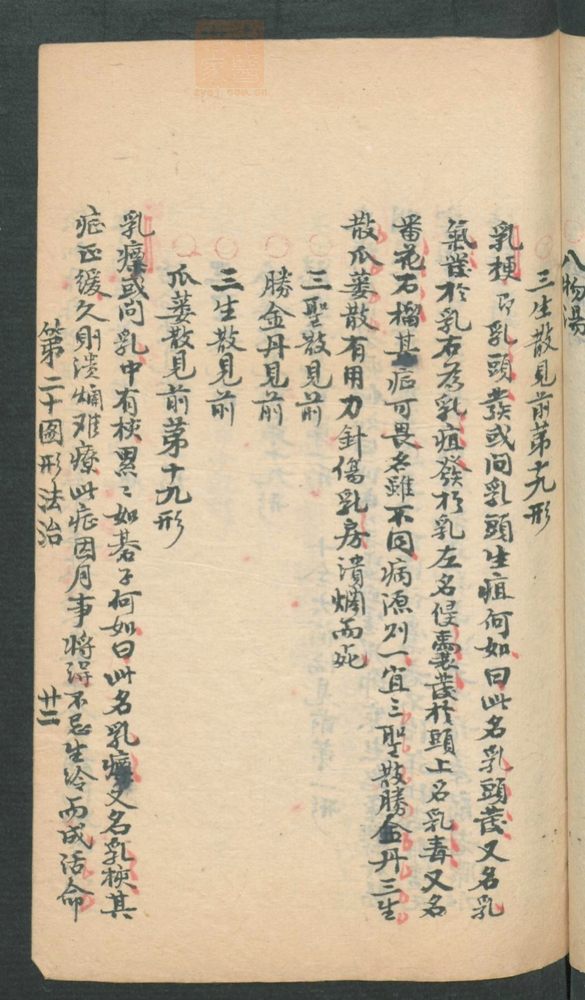 八物湯
三生散見前第十九形
乳梗即乳頭發或问乳頭生疽何如曰此名乳頭發又名乳
氣發於乳右为乳疽發於乳左名侵囊發於頭上名乳毒又名
番花石榴其症可畏名雖不同病源则一宜三聖散勝金丹三生
散瓜蒌散有用刀針傷乳房潰烂而死
三聖散見前
勝金丹見前
三生散見前
瓜蒌散見前第十九形
乳癖或问乳中有核累〻如碁子何如曰此名乳癖又名乳核其
症正缓久则潰烂难療此症因月事将淂不忌生冷而成活命
第二十圖形法治 廿二